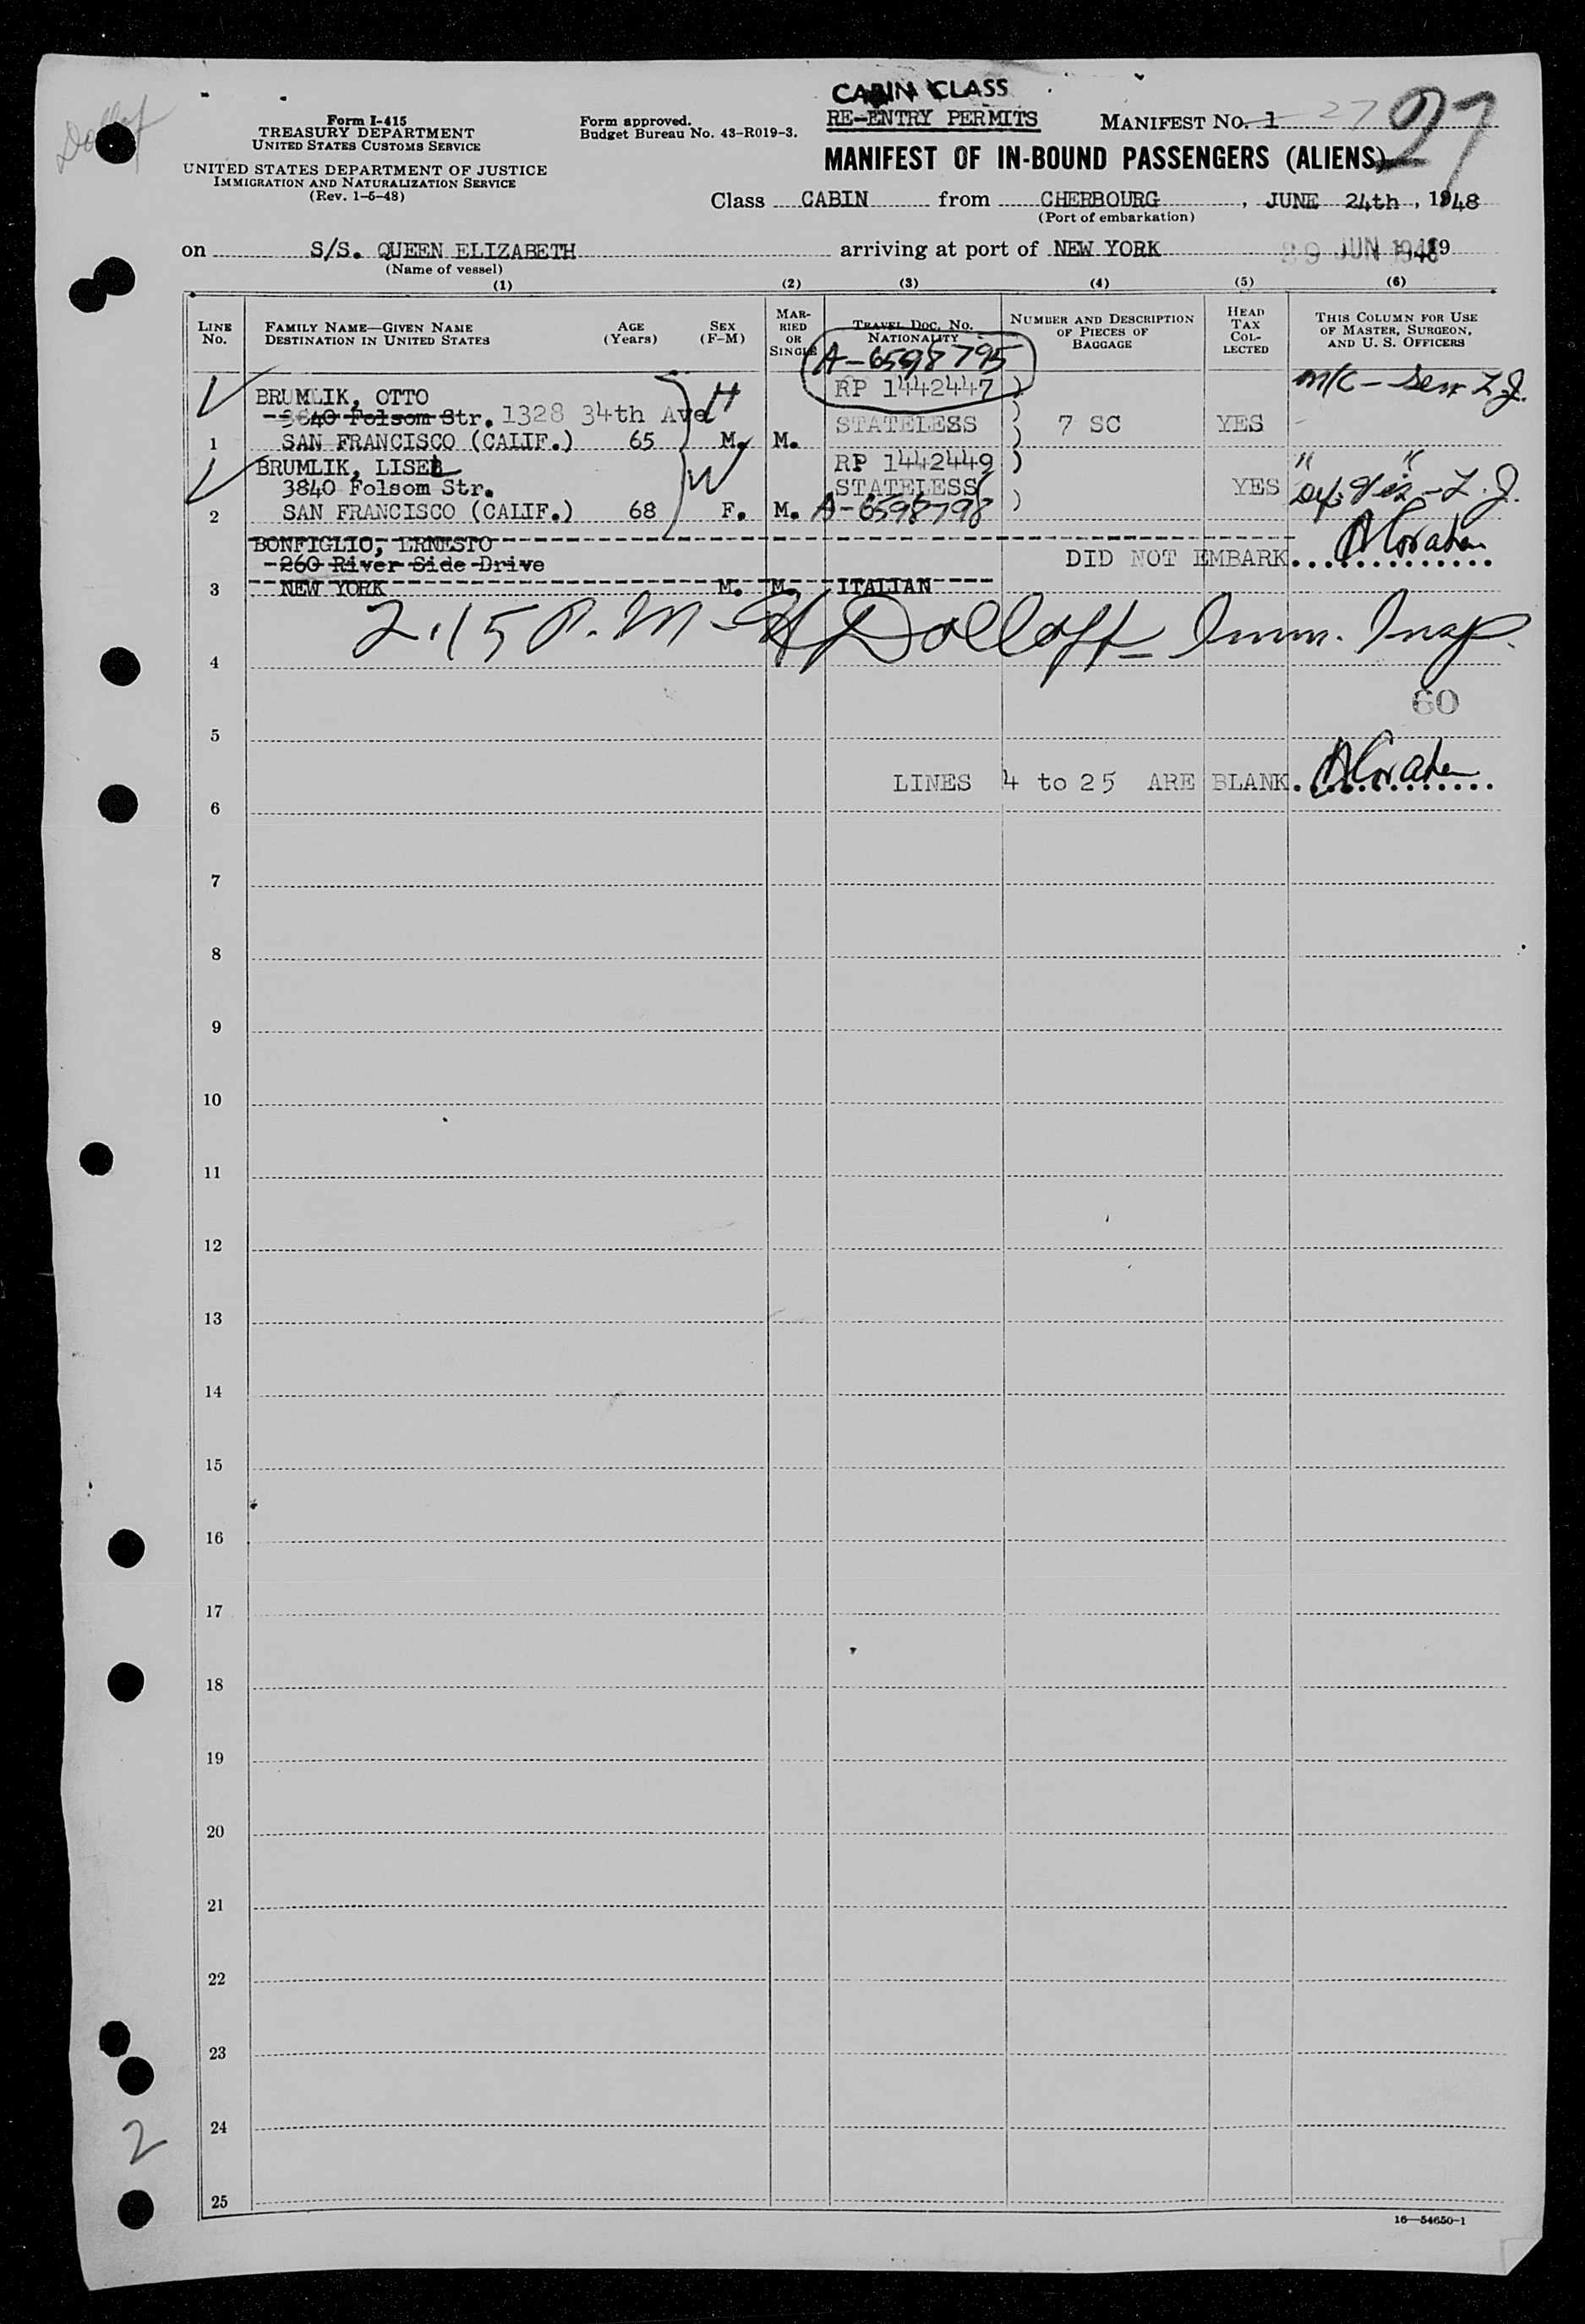 Dollof
CABIN CLASS
RE-ENTRY PERMITS
Form I-415
TREASURY DEPARTMENT
UNITED STATES CUSTOMS SERVICE
Form approved.
Budget Bureau No. 43-R019-3.
MANIFEST NO. 1 27 27
UNITED STATES DEPARTMENT OF JUSTICE
IMMIGRATION AND NATURALIZATION SERVICE
(Rev. 1-6-48)
MANIFEST OF IN-BOUND PASSENGERS (ALIENS)
Class CABIN from CHERBOURG, JUNE 24th, 1948
(Port of embarkation)
on S/S. QUEEN ELIZABETH arriving at port of NEW YORK 29 JUN 1948 19
(Name of vessel)
(1) (2) (3) (4) (5) (6)
LINE No.
FAMILY NAME—GIVEN NAME
DESTINATION IN UNITED STATES
AGE (Years)
SEX (F-M)
MARRIED OR SINGLE
TRAVEL DOC. NO.
NATIONALITY
NUMBER AND DESCRIPTION OF PIECES OF BAGGAGE
HEAD TAX COLLECTED
THIS COLUMN FOR USE OF MASTER, SURGEON, AND U. S. OFFICERS
A-6598795
BRUMLIK, OTTO H RP 1442447 ) m/c - Sen L.J.
3840 Folsom Str. 1328 34th Ave STATELESS ) 7 SC YES
1 SAN FRANCISCO (CALIF.) 65 M. M. )
BRUMLIK, LISEL W RP 1442449 ) " "
3840 Folsom Str. STATELESS YES
2 SAN FRANCISCO (CALIF.) 68 F. M. A-6598798 )
BONFIGLIO, ERNESTO
260 River Side Drive DID NOT EMBARK.
3 NEW YORK M. M. ITALIAN
2.15 P.M - Dolloff - Imm. Insp.
4
60
5
LINES 4 to 25 ARE BLANK.
6
7
8
9
10
11
12
13
14
15
16
17
18
19
20
21
22
23
2
24
25
16—54650-1